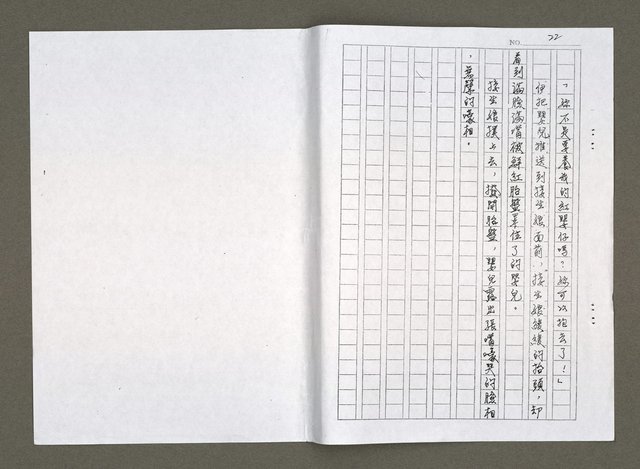 NO. 72
「妳不是要養我的紅嬰仔嗎？妳可以抱去了！」
伊把嬰兒推送到接生娘面前，接生娘緩緩的抬頭，却
看到滿臉滿嘴被鮮紅胎盤罩住了的嬰兒。
接生娘撲上去，撥開胎盤，嬰兒露出張嘴嚎哭的臉相
，無聲的嚎相。